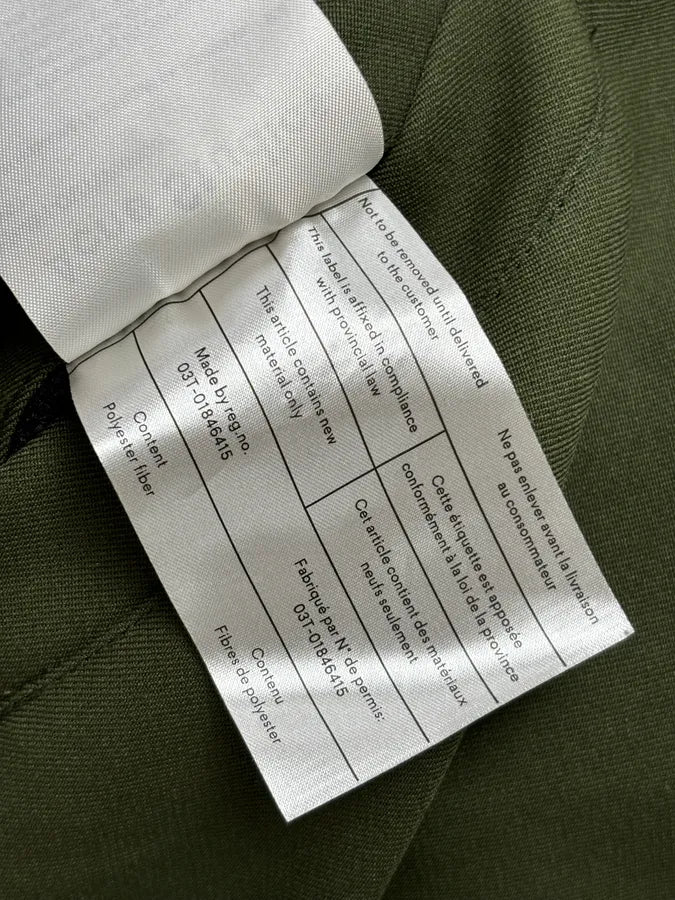 Not to be removed until delivered
to the customer
Ne pas enlever avant la livraison
au consommateur
This label is affixed in compliance
with provincial law
Cette étiquette est apposée
conformément à la loi de la province
This article contains new
material only
Cet article contient des matériaux
neufs seulement
Made by reg.no.
03T-01846415
Fabriqué par N° de permis:
03T-01846415
Content
Polyester fiber
Contenu
Fibres de polyester